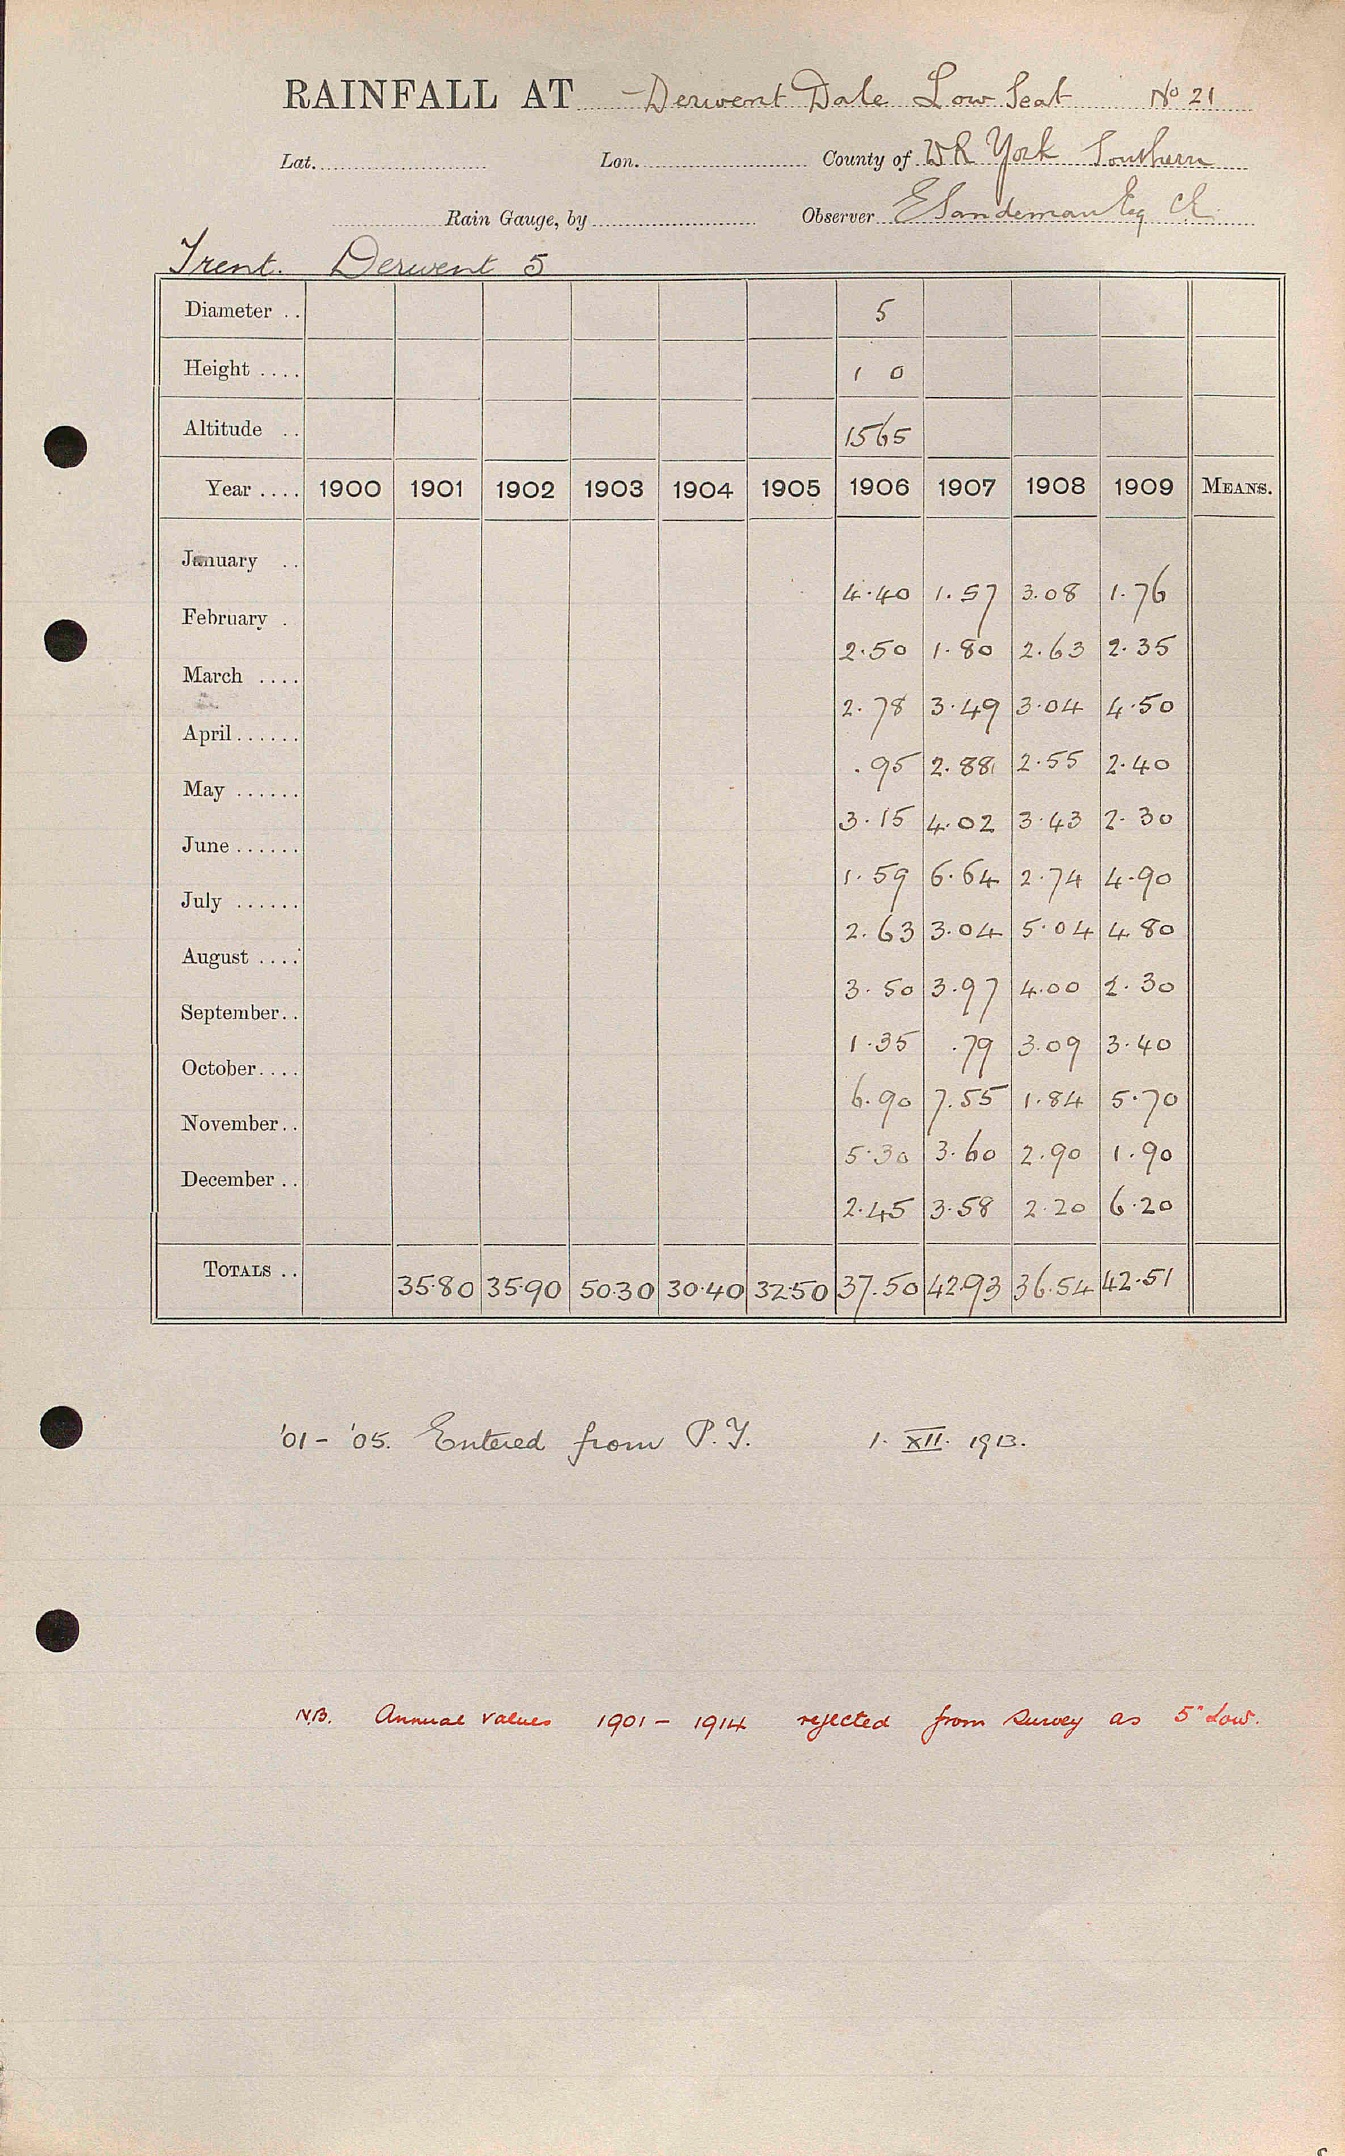 RAINFALL AT Derwent Dale Low Seat No 21
Lat. Lon. County of WR York Southern
Rain Gauge, by Observer E Sandeman Esq CE
Trent. Derwent 5
Diameter .. 5
Height .... 1 0
Altitude .. 1565
Year .... 1900 1901 1902 1903 1904 1905 1906 1907 1908 1909 MEANS.
January .. 4.40 1.57 3.08 1.76
February . 2.50 1.80 2.63 2.35
March .... 2.78 3.49 3.04 4.50
April...... .95 2.88 2.55 2.40
May ...... 3.15 4.02 3.43 2.30
June...... 1.59 6.64 2.74 4.90
July ...... 2.63 3.04 5.04 4.80
August .... 3.50 3.97 4.00 2.30
September.. 1.35 .79 3.09 3.40
October.... 6.90 7.55 1.84 5.70
November.. 5.30 3.60 2.90 1.90
December .. 2.45 3.58 2.20 6.20
TOTALS .. 35.80 35.90 50.30 30.40 32.50 37.50 42.93 36.54 42.51
'01 - '05. Entered from P.Y. 1. XII. 1913.
N.B. Annual values 1901 - 1914 rejected from Survey as 5" low.